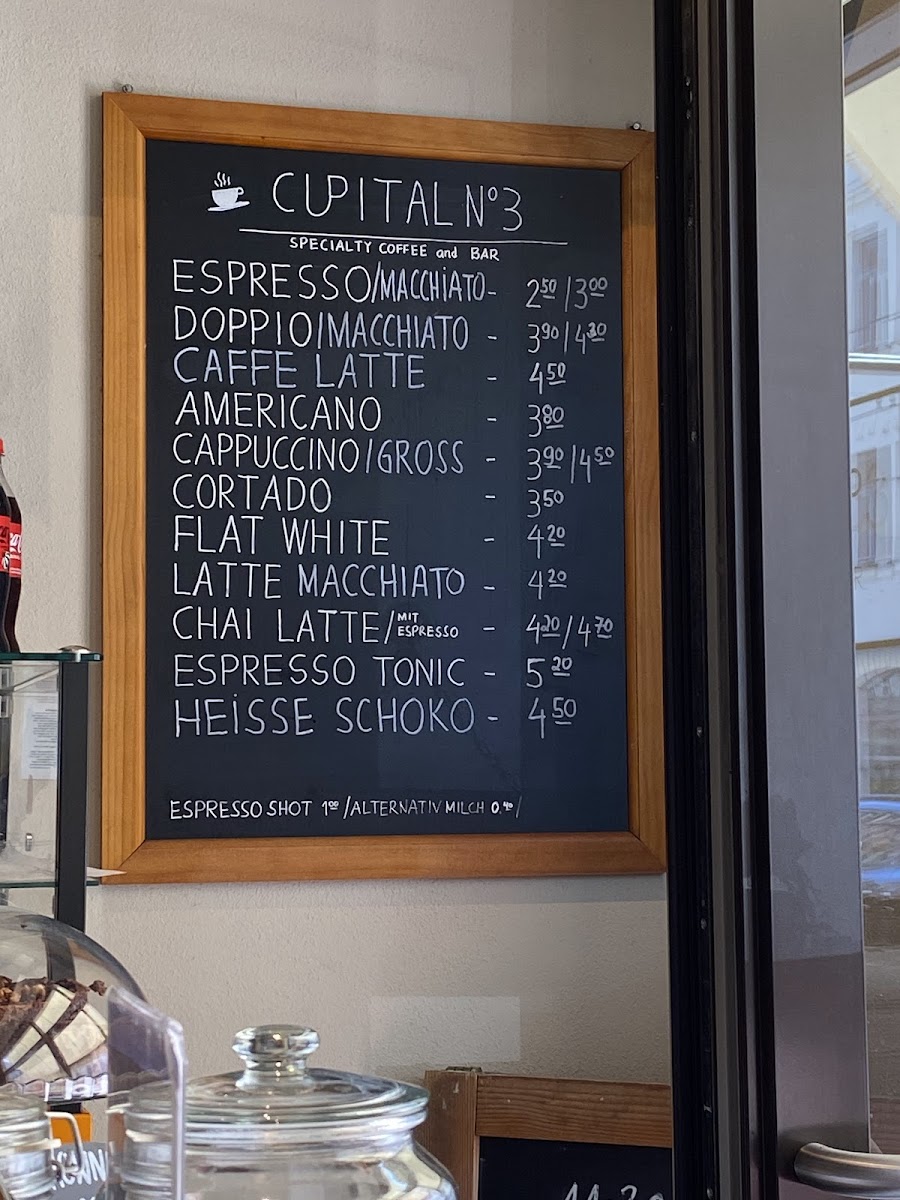 CUPITAL Nº3
SPECIALTY COFFEE and BAR
ESPRESSO/MACCHiATO - 2.50 / 3.00
DOPPIO/MACCHIATO - 3.90 / 4.20
CAFFE LATTE - 4.50
AMERICANO - 3.80
CAPPUCCINO/GROSS - 3.90 / 4.50
CORTADO - 3.50
FLAT WHITE - 4.20
LATTE MACCHIATO - 4.20
CHAI LATTE/MIT ESPRESSO - 4.20 / 4.70
ESPRESSO TONIC - 5.20
HEiSSE SCHOKO - 4.50
ESPRESSO SHOT 1.00 /ALTERNATIV MILCH 0.40/